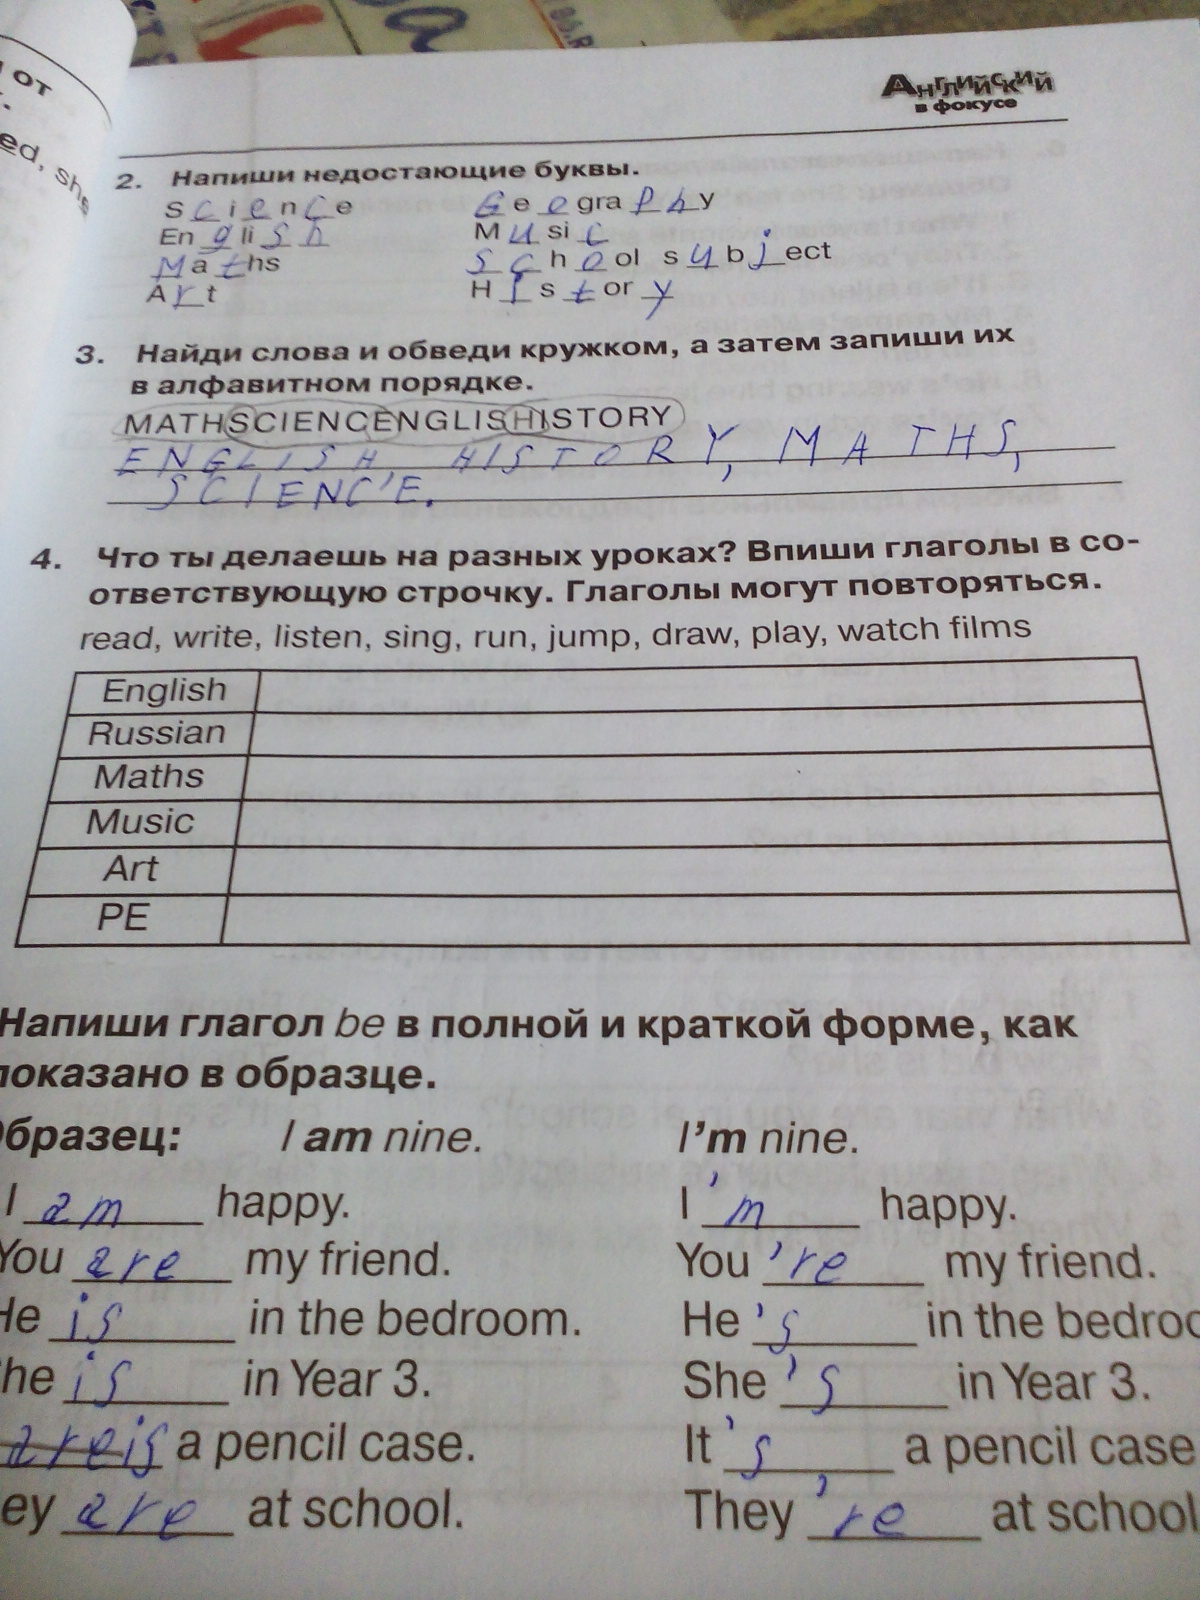 от
ed, she
Английский
в фокусе
2. Напиши недостающие буквы.
Science Geography
English Music
Maths School subject
Art History
3. Найди слова и обведи кружком, а затем запиши их
в алфавитном порядке.
MATHSCIENCENGLISHISTORY
ENGLISH, HISTORY, MATHS,
SCIENCE.
4. Что ты делаешь на разных уроках? Впиши глаголы в со-
ответствующую строчку. Глаголы могут повторяться.
read, write, listen, sing, run, jump, draw, play, watch films
English
Russian
Maths
Music
Art
PE
Напиши глагол be в полной и краткой форме, как
показано в образце.
бразец: I am nine. I'm nine.
I am happy. I 'm happy.
You are my friend. You 're my friend.
He is in the bedroom. He 's in the bedroo
he is in Year 3. She 's in Year 3.
are is a pencil case. It 's a pencil case
ey are at school. They 're at school